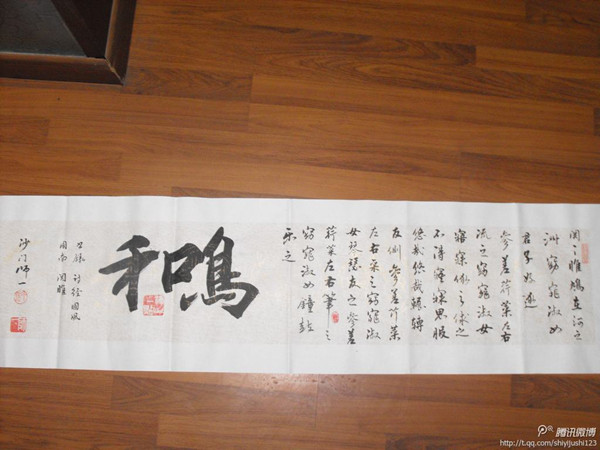 関々雎鳩在河之
洲窈窕淑女
君子好逑
參差荇菜左右
流之窈窕淑女
寤寐求之求之
不得寤寐思服
悠哉悠哉輾轉
反側參差荇菜
左右采之窈窕淑
女琴瑟友之參差
荇菜左右芼之
窈窕淑女鐘鼓
乐之
鳴和
詩経國風
周南関雎
沙门师一
腾讯微博
http://t.qq.com/shiyijushi123